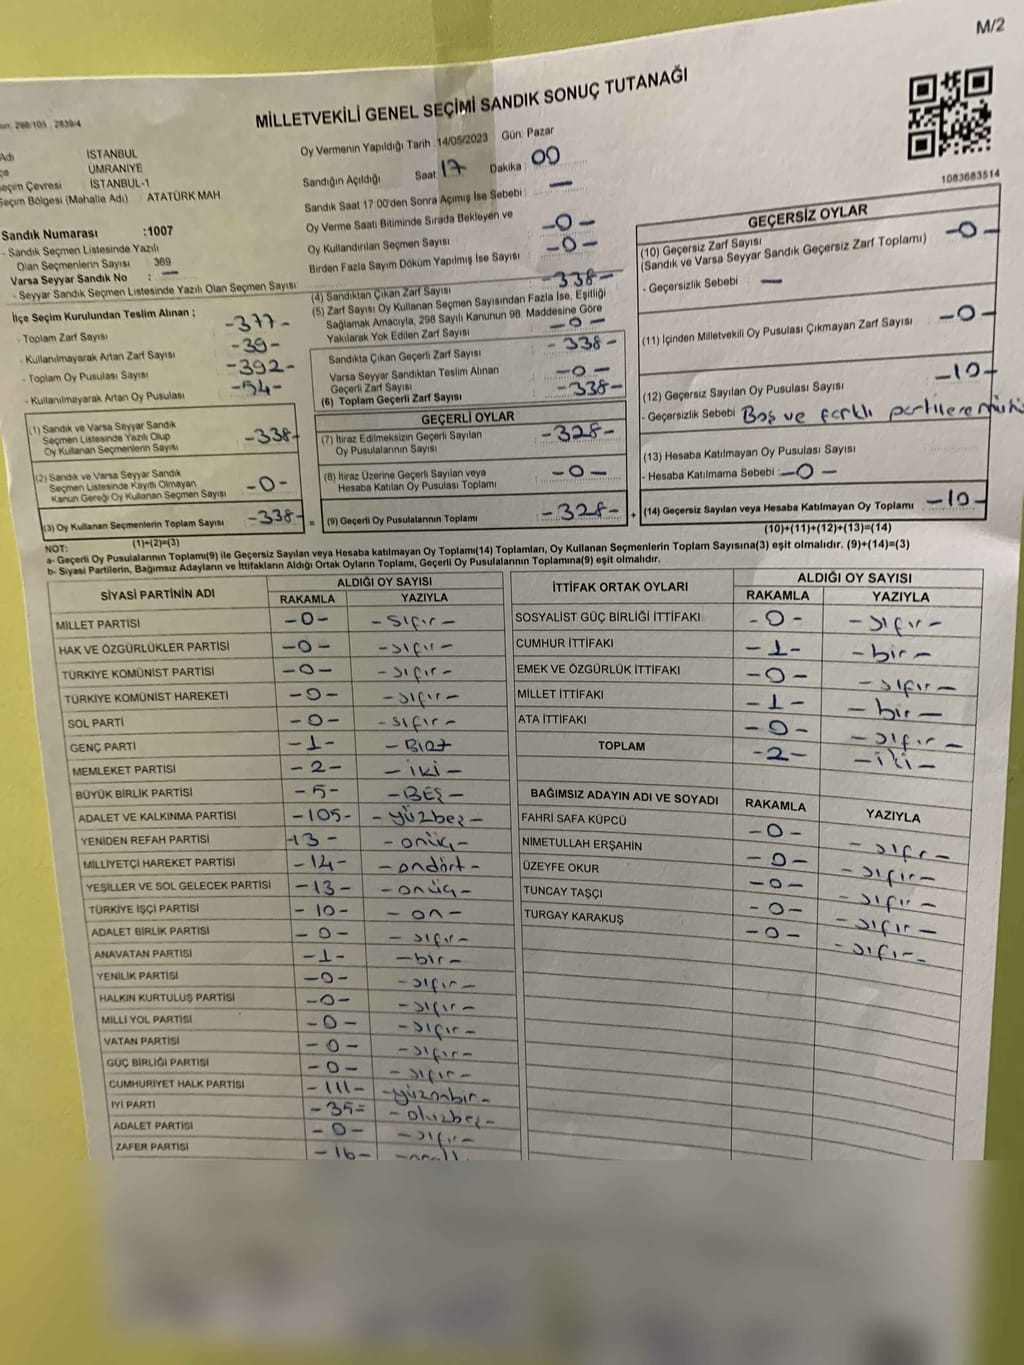 M/2
298/105 2839/4
MİLLETVEKİLİ GENEL SEÇİMİ SANDIK SONUÇ TUTANAĞI
1083683514
Adı İSTANBUL
ÜMRANİYE
Seçim Çevresi İSTANBUL-1
Seçim Bölgesi (Mahalle Adı) ATATÜRK MAH
Sandık Numarası :1007
- Sandık Seçmen Listesinde Yazılı
Olan Seçmenlerin Sayısı : 369
Varsa Seyyar Sandık No : —
- Seyyar Sandık Seçmen Listesinde Yazılı Olan Seçmen Sayısı
Oy Vermenin Yapıldığı Tarih :14/05/2023 Gün: Pazar
Sandığın Açıldığı Saat: 17 Dakika: 00
Sandık Saat 17:00'den Sonra Açımış İse Sebebi : —
Oy Verme Saati Bitiminde Sırada Bekleyen ve
Oy Kullandırılan Seçmen Sayısı -0-
Birden Fazla Sayım Döküm Yapılmış İse Sayısı -0-
İlçe Seçim Kurulundan Teslim Alınan ;
- Toplam Zarf Sayısı -377-
- Kullanılmayarak Artan Zarf Sayısı -39-
- Toplam Oy Pusulası Sayısı -392-
- Kullanılmayarak Artan Oy Pusulası -54-
(1) Sandık ve Varsa Seyyar Sandık
Seçmen Listesinde Yazılı Olup
Oy Kullanan Seçmenlerin Sayısı -338-
(2) Sandık ve Varsa Seyyar Sandık
Seçmen Listesinde Kayıtlı Olmayan
Kanun Gereği Oy Kullanan Seçmen Sayısı -0-
(3) Oy Kullanan Seçmenlerin Toplam Sayısı -338-
(1)+(2)=(3)
(4) Sandıktan Çıkan Zarf Sayısı -338-
(5) Zarf Sayısı Oy Kullanan Seçmen Sayısından Fazla İse, Eşitliği
Sağlamak Amacıyla, 298 Sayılı Kanunun 98. Maddesine Göre
Yakılarak Yok Edilen Zarf Sayısı -0-
Sandıkta Çıkan Geçerli Zarf Sayısı -338-
Varsa Seyyar Sandıktan Teslim Alınan
Geçerli Zarf Sayısı -0-
(6) Toplam Geçerli Zarf Sayısı -338-
GEÇERLİ OYLAR
(7) İtiraz Edilmeksizin Geçerli Sayılan
Oy Pusulalarının Sayısı -328-
(8) İtiraz Üzerine Geçerli Sayılan veya
Hesaba Katılan Oy Pusulası Toplamı -0-
= (9) Geçerli Oy Pusulalarının Toplamı -328- +
GEÇERSİZ OYLAR
(10) Geçersiz Zarf Sayısı
(Sandık ve Varsa Seyyar Sandık Geçersiz Zarf Toplamı) -0-
- Geçersizlik Sebebi : —
(11) İçinden Milletvekili Oy Pusulası Çıkmayan Zarf Sayısı -0-
(12) Geçersiz Sayılan Oy Pusulası Sayısı -10-
- Geçersizlik Sebebi : Boş ve farklı partilere
(13) Hesaba Katılmayan Oy Pusulası Sayısı
- Hesaba Katılmama Sebebi : -0-
(14) Geçersiz Sayılan veya Hesaba Katılmayan Oy Toplamı -10-
(10)+(11)+(12)+(13)=(14)
NOT:
a- Geçerli Oy Pusulalarının Toplamı(9) ile Geçersiz Sayılan veya Hesaba katılmayan Oy Toplamı(14) Toplamları, Oy Kullanan Seçmenlerin Toplam Sayısına(3) eşit olmalıdır. (9)+(14)=(3)
b- Siyasi Partilerin, Bağımsız Adayların ve İttifakların Aldığı Ortak Oyların Toplamı, Geçerli Oy Pusulalarının Toplamına(9) eşit olmalıdır.
SİYASİ PARTİNİN ADI ALDIĞI OY SAYISI
RAKAMLA YAZIYLA
MİLLET PARTİSİ -0- -sıfır-
HAK VE ÖZGÜRLÜKLER PARTİSİ -0- -sıfır-
TÜRKİYE KOMÜNİST PARTİSİ -0- -sıfır-
TÜRKİYE KOMÜNİST HAREKETİ -0- -sıfır-
SOL PARTİ -0- -sıfır-
GENÇ PARTİ -1-
MEMLEKET PARTİSİ -2- -iki-
BÜYÜK BİRLİK PARTİSİ -5- -BEŞ-
ADALET VE KALKINMA PARTİSİ -105- -yüzbeş-
YENİDEN REFAH PARTİSİ -13- -onüç-
MİLLİYETÇİ HAREKET PARTİSİ -14- -ondört-
YEŞİLLER VE SOL GELECEK PARTİSİ -13- -onüç-
TÜRKİYE İŞÇİ PARTİSİ -10- -on-
ADALET BİRLİK PARTİSİ -0- -sıfır-
ANAVATAN PARTİSİ -1- -bir-
YENİLİK PARTİSİ -0- -sıfır-
HALKIN KURTULUŞ PARTİSİ -0- -sıfır-
MİLLİ YOL PARTİSİ -0- -sıfır-
VATAN PARTİSİ -0- -sıfır-
GÜÇ BİRLİĞİ PARTİSİ -0- -sıfır-
CUMHURİYET HALK PARTİSİ -111- -yüzonbir-
İYİ PARTİ -35- -otuzbeş-
ADALET PARTİSİ -0- -sıfır-
ZAFER PARTİSİ -16-
İTTİFAK ORTAK OYLARI ALDIĞI OY SAYISI
RAKAMLA YAZIYLA
SOSYALİST GÜÇ BİRLİĞİ İTTİFAKI -0- -sıfır-
CUMHUR İTTİFAKI -1- -bir-
EMEK VE ÖZGÜRLÜK İTTİFAKI -0- -sıfır-
MİLLET İTTİFAKI -1- -bir-
ATA İTTİFAKI -0- -sıfır-
TOPLAM -2- -iki-
BAĞIMSIZ ADAYIN ADI VE SOYADI RAKAMLA YAZIYLA
FAHRİ SAFA KÜPCÜ -0- -sıfr-
NİMETULLAH ERŞAHİN -0- -sıfır-
ÜZEYFE OKUR -0- -sıfır-
TUNCAY TAŞÇI -0- -sıfır-
TURGAY KARAKUŞ -0- -sıfır-